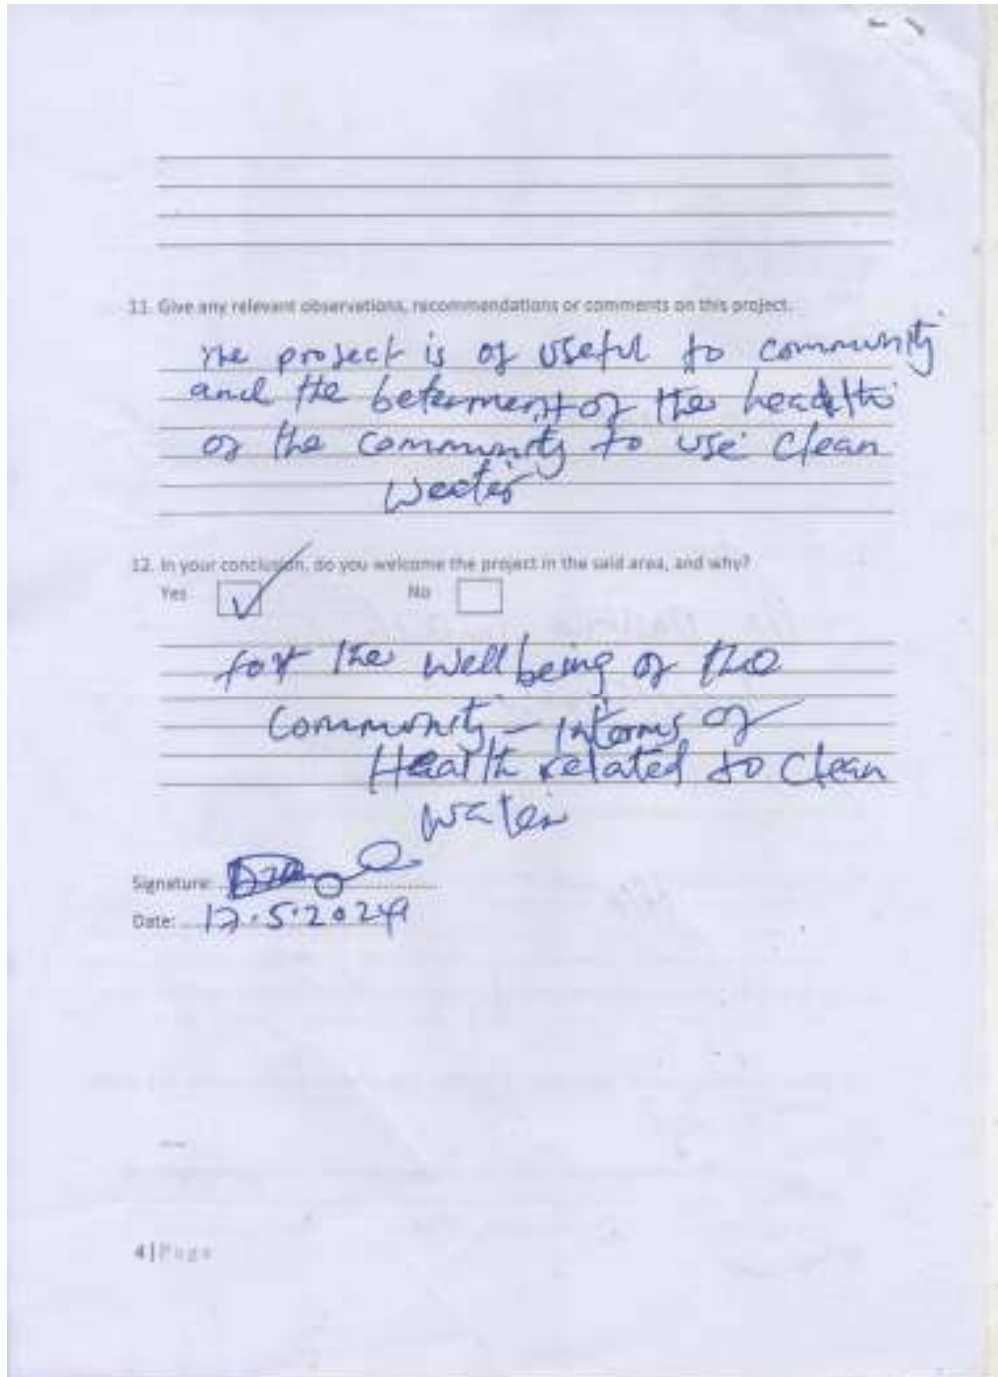 11. Give any relevant observations, recommendations or comments on this project.
The project is of useful to community
and the beterment of the health
of the community to use clean
Weater
12. In your conclusion, do you welcome the project in the said area, and why?
Yes No
for the well being of the
Community - interms of
Health related to clean
water
Signature:
Date: 17.5.2024
4|Page